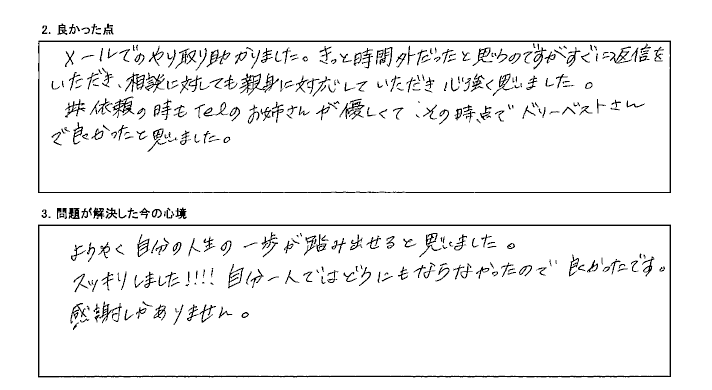 2. 良かった点
メールでのやり取り助かりました。きっと時間外だったと思うのですがすぐに返信を
いただき、相談に対しても親身に対応していただき心強く思いました。
依頼の時もTelのお姉さんが優しくて、その時点でベリーベストさん
で良かったと思いました。
3. 問題が解決した今の心境
ようやく自分の人生の一歩が踏み出せると思いました。
スッキリしました!!!! 自分一人ではどうにもならなかったので良かったです。
感謝しかありません。